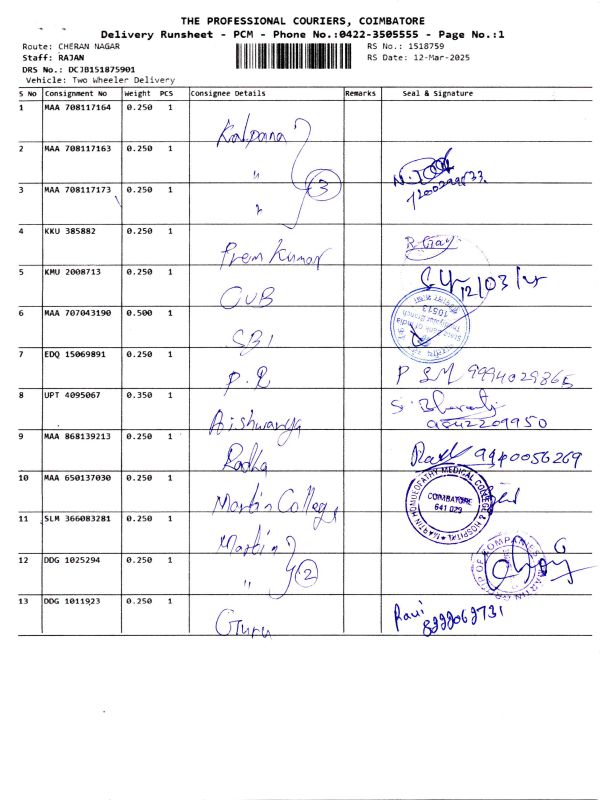 THE PROFESSIONAL COURIERS, COIMBATORE
Delivery Runsheet - PCM - Phone No.:0422-3505555 - Page No.:1
Route: CHERAN NAGAR RS No.: 1518759
Staff: RAJAN RS Date: 12-Mar-2025
DRS No.: DCJB151875901
Vehicle: Two Wheeler Delivery
S No Consignment No Weight PCS Consignee Details Remarks Seal & Signature
1 MAA 708117164 0.250 1 Kalpana
2 MAA 708117163 0.250 1 "
3 MAA 708117173 0.250 1 " 3
4 KKU 385882 0.250 1 Prem Kumar
5 KMU 2008713 0.250 1 CUB 12/03/
6 MAA 707043190 0.500 1 SBI State Bank of India 10513
7 EDQ 15069891 0.250 1 P.R P SM 9994029865
8 UPT 4095067 0.350 1 Aishwarya S. Bharathi 9842209950
9 MAA 868139213 0.250 1 Radha 9940056269
10 MAA 650137030 0.250 1 Martin College MARTIN HOMOEOPATHY MEDICAL COLLEGE & HOSPITAL COIMBATORE 641 029
11 SLM 366083281 0.250 1 Martin
12 DDG 1025294 0.250 1 " 2 MARTIN GROUP OF COMPANIES
13 DDG 1011923 0.250 1 Guru Ravi